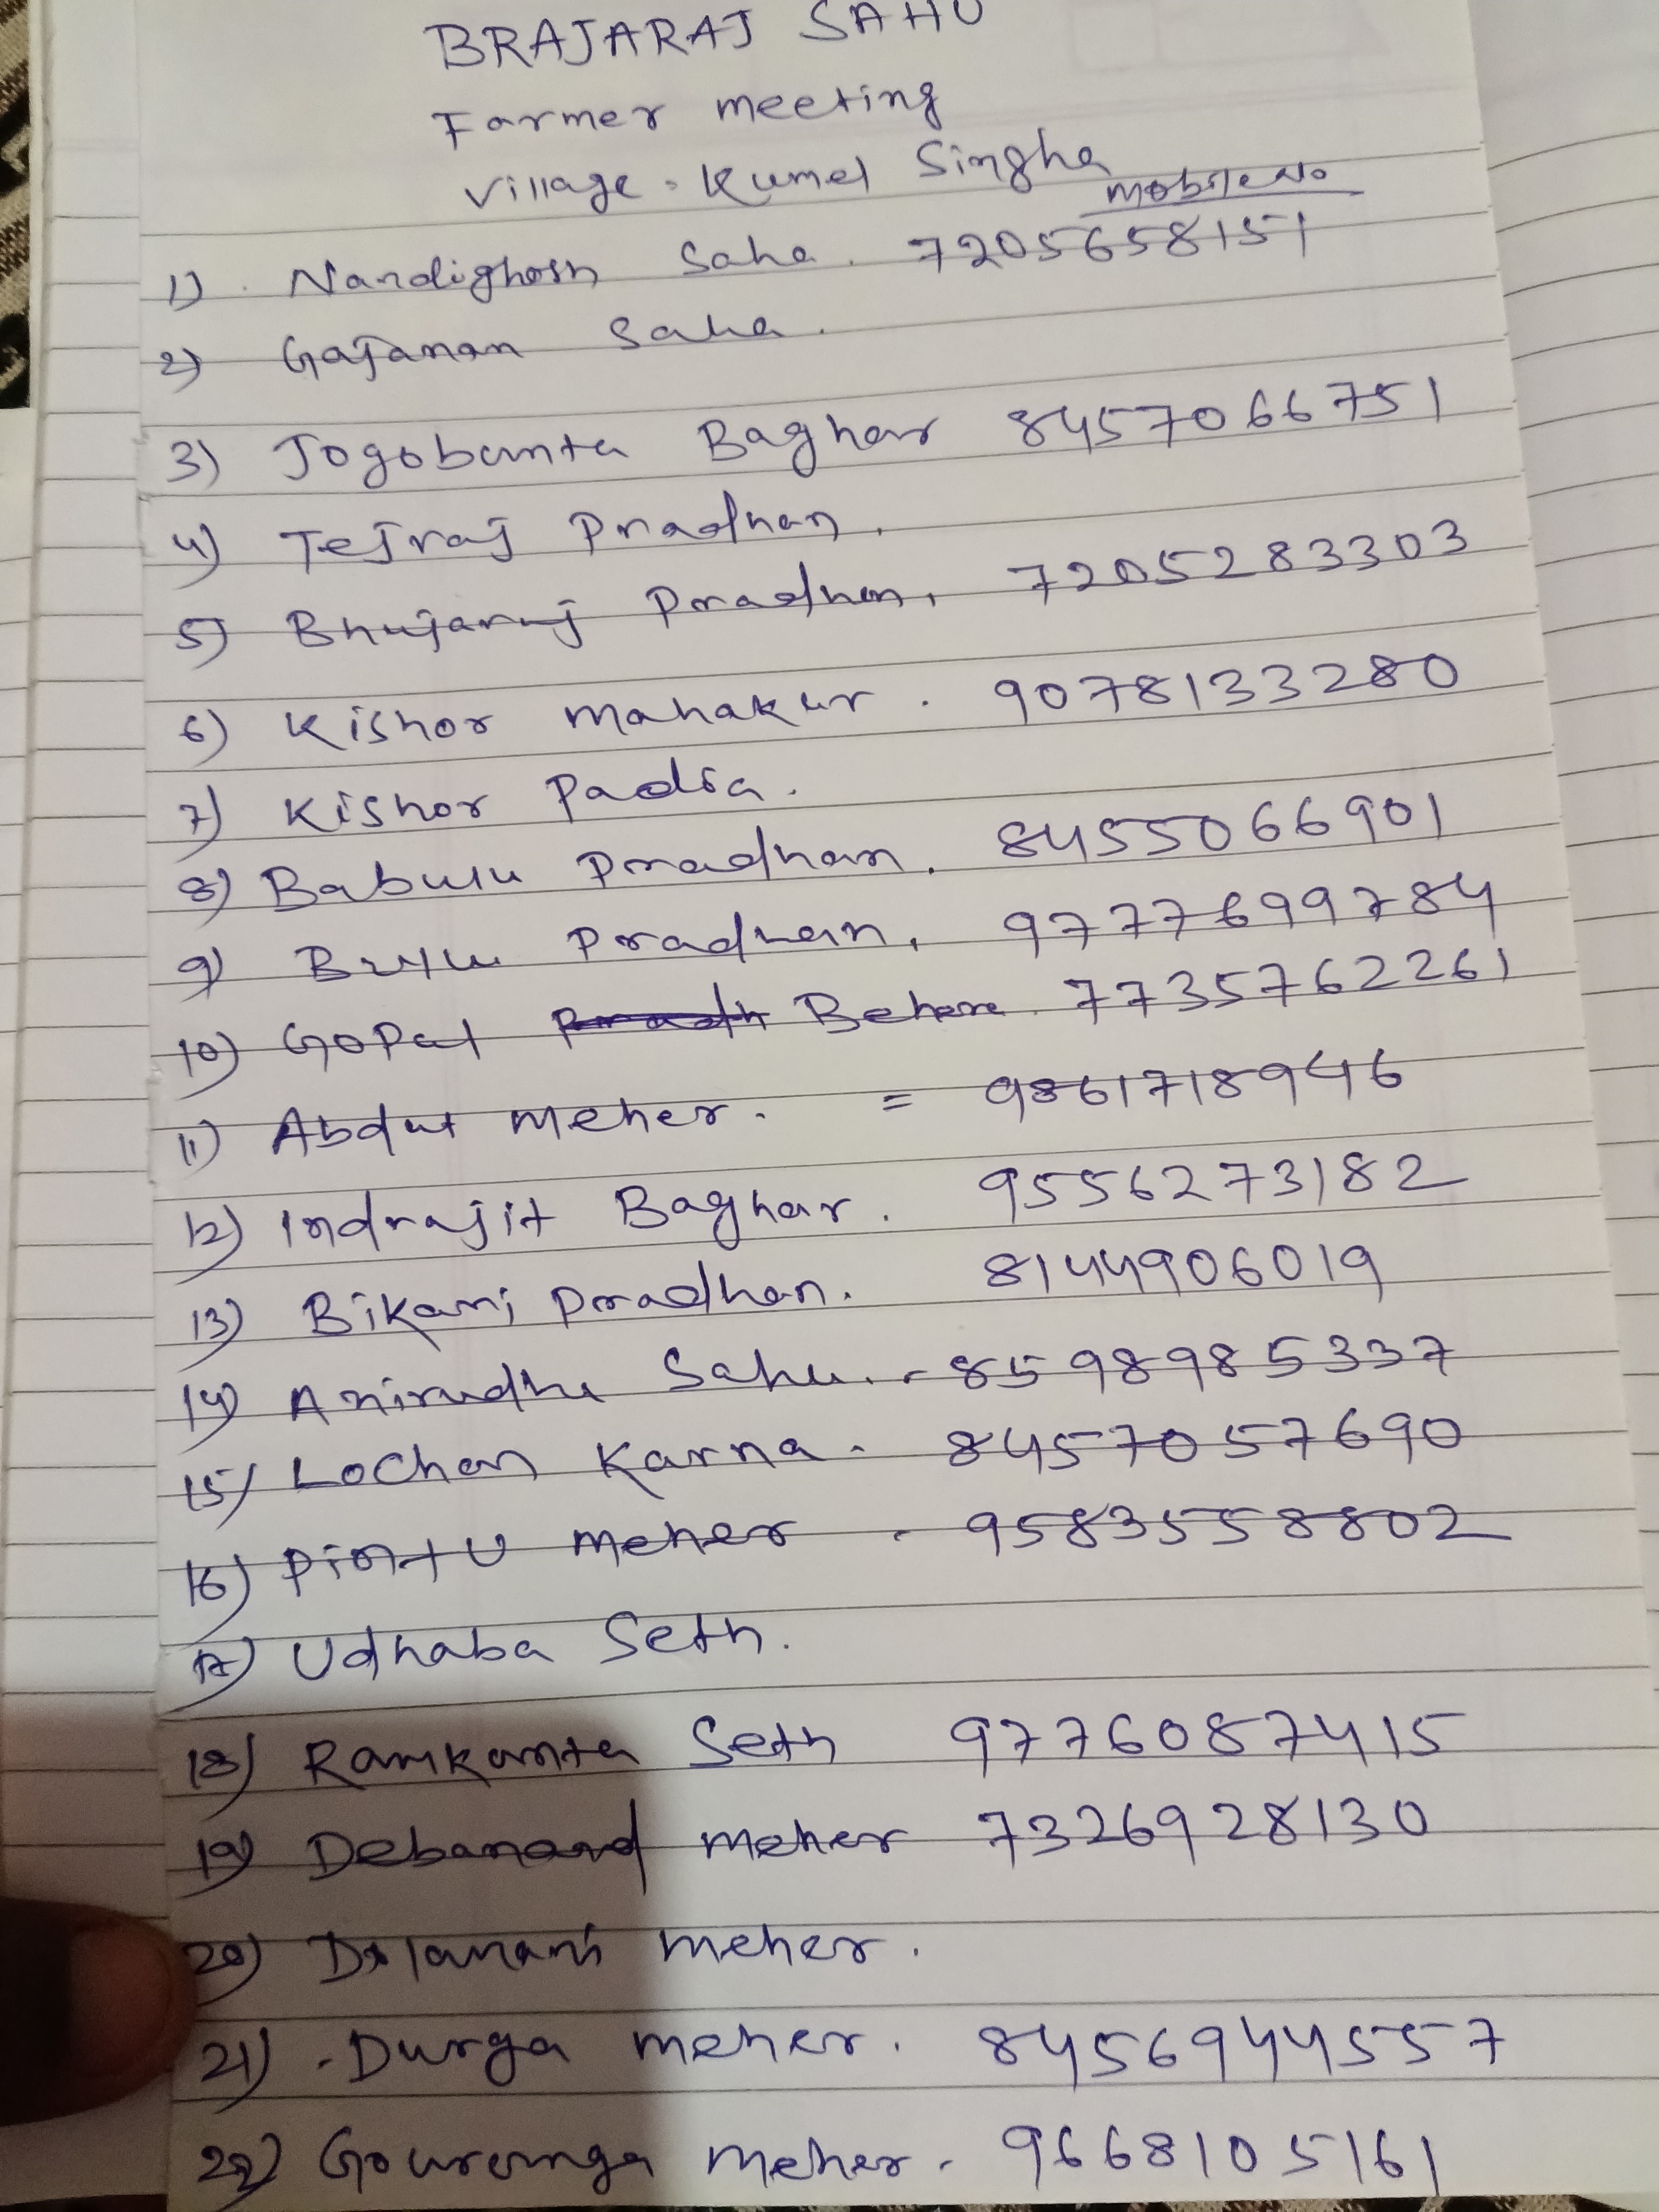 BRAJARAJ SAHU
Farmer meeting
Village - Kumel Singha
Mobile No
1) Nandighosh Saha. 7205658151
2) Gajanan Saha.
3) Jogobanta Baghar 8457066751
4) Tejraj Pradhan.
5) Bhujaraj Pradhan, 7205283303
6) Kishor Mahakur. 9078133280
7) Kishor Padia.
8) Babulu Pradhan. 8455066901
9) Pradhan, 9777699784
10) Gopal Behera. 7735762261
11) Abdut Meher. = 9861718946
12) Indrajit Baghar. 9556273182
13) Bikani Pradhan. 8144906019
14) Anirudha Sahu. - 8598985337
15) Lochan Karna. 8457057690
16) Pintu Meher - 9583558802
17) Udhaba Seth.
18) Ramkanta Seth 9776087415
19) Debanand Meher 7326928130
20) Meher.
21) Durga Meher. 8456944557
22) Gouranga Meher. 9668105161